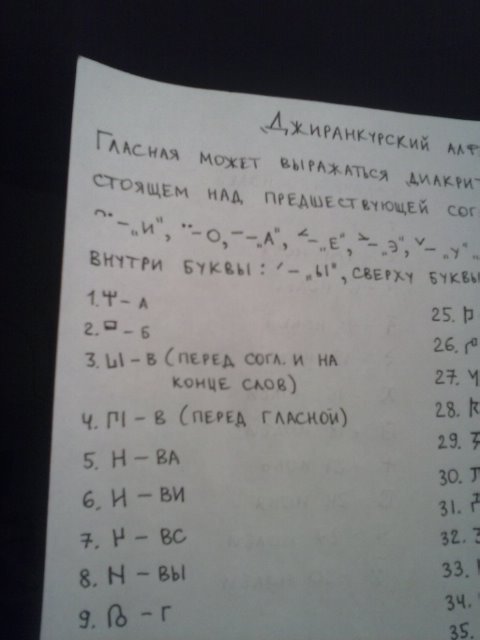 Джиранкурский алф
Гласная может выражаться диакрит
стоящем над предшествующей сог
⏜¨ – „и", ¨ – о, – – „а", < – „е", > – „э", ˅ – „у"
внутри буквы: ʹ – „ы", сверху буквы
1. Ψ – а
2. – б
3. – в (перед согл. и на
конце слов)
4. – в (перед гласной)
5. Н – ва
6. И – ви
7. – вс
8. N – вы
9. – г
25.
26.
27.
28.
29.
30.
31.
32.
33.
34.
35.